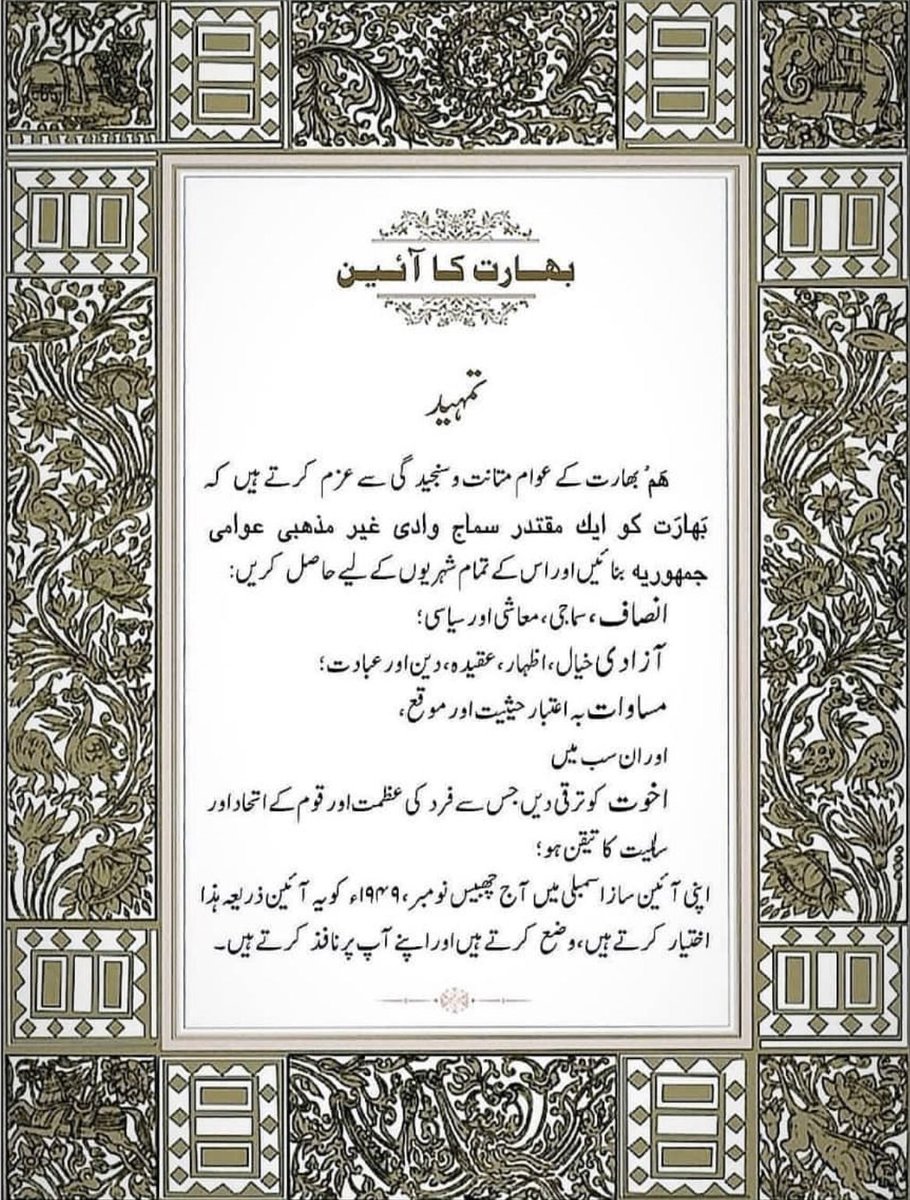 بھارت کا آئین
تمہید
ہَم' بھارت کے عوام متانت و سنجیدگی سے عزم کرتے ہیں کہ
بَھارَت کو ایك مقتدر سماج وادی غیر مذھبی عوامی
جمہوریہ بنائیں اور اس کے تمام شہریوں کے لیے حاصل کریں:
انصاف، سماجی، معاشی اور سیاسی؛
آزادی خیال، اظہار، عقیدہ، دین اور عبادت؛
مساوات بہ اعتبار حیثیت اور موقع،
اور ان سب میں
اخوت کو ترقی دیں جس سے فرد کی عظمت اور قوم کے اتحاد اور
سالمیت کا تیقن ہو؛
اپنی آئین ساز اسمبلی میں آج چھبیس نومبر، ۱۹۴۹ء کو یہ آئین ذریعہ ہذا
اختیار کرتے ہیں، وضع کرتے ہیں اور اپنے آپ پر نافذ کرتے ہیں۔